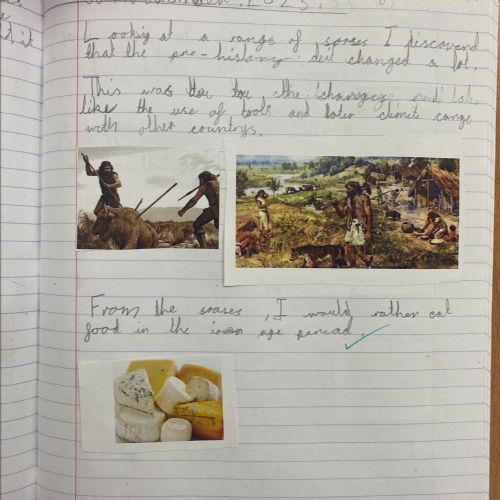 2023.
Looking at a range of sorses I discoverd
that the pre-history diet changed a lot.
This was dou tou the changes
like the use of tools and later climite cange
with other countrys.
From the sorses, I would rather eat
food in the iron age peread.